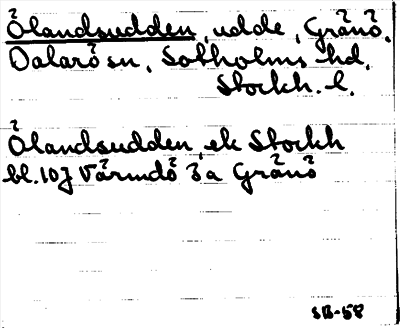 Ölandsudden, udde, Gränö,
Dalarö sn, Sotholms hd,
Stockh. l.
Ölandsudden, ek Stockh
bl. 107 Värmdö 3a Gränö
SB-58